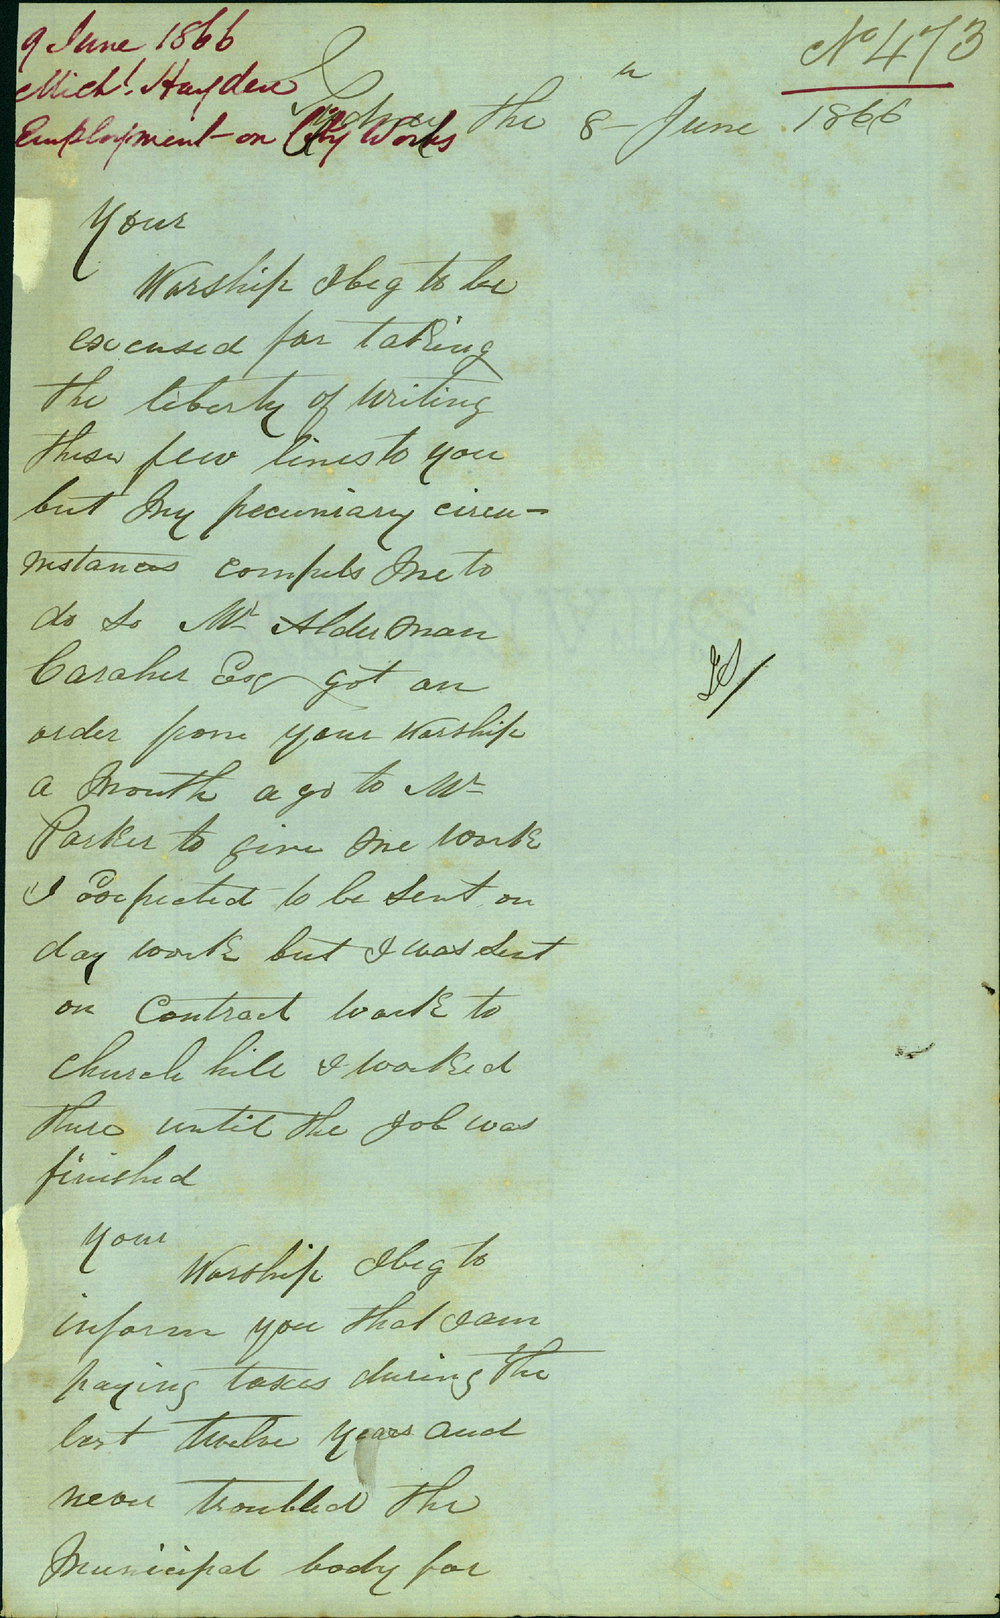 9 June 1866
Michl. Hayden
Employment on City Works
No 473
Sydney the 8th June 1866
Your
Worship I beg to be
excused for taking
the liberty of writing
these few lines to you
but My pecuniary circu-
mstances compels Me to
do So Mr Alderman
Caraher Esq got an
order from your Worship
a Month a go to Mr
Parker to give Me work
I Expected to be Sent on
day work but I was Sent
on Contract work to
Church hill I worked
there until the Job was
finished
Your
Worship I beg to
inform you that I am
paying taxes during the
last twelve years and
never troubled the
Municipal body for